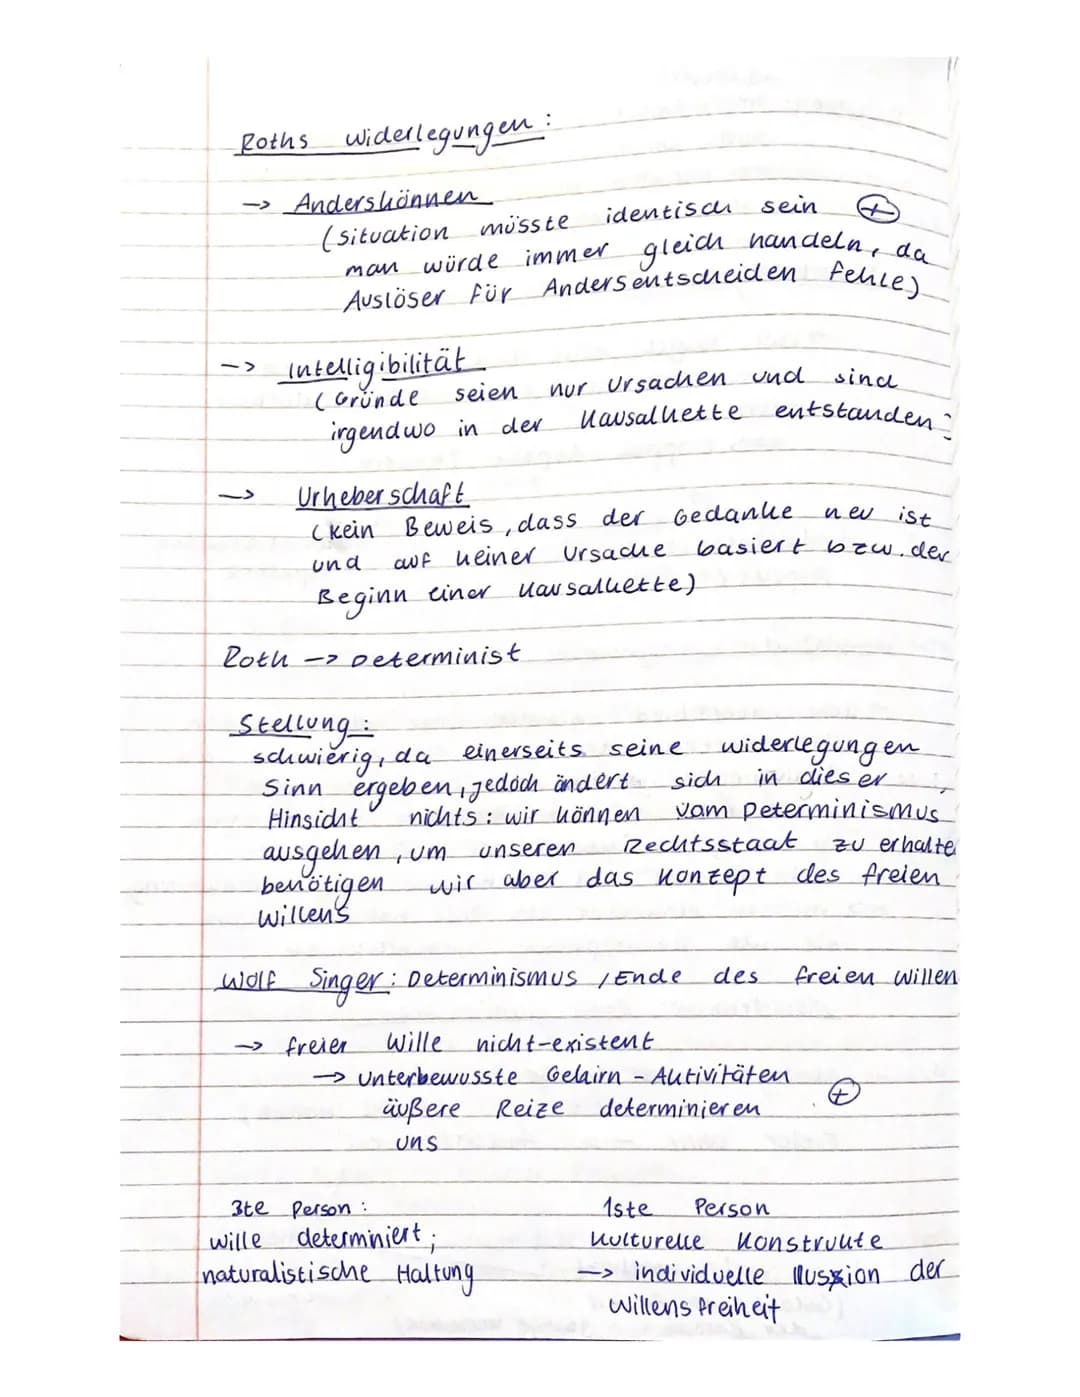 Roths Widerlegungen:
-> Anderskönnen
(Situation müsste identisch sein ⊕
man würde immer gleich handeln, da
Auslöser für Andersentscheiden fehle)
-> Intelligibilität
(Gründe seien nur Ursachen und sind
irgendwo in der Kausalkette entstanden)
-> Urheberschaft
(Kein Beweis, dass der Gedanke neu ist
und auf keiner Ursache basiert bzw. der
Beginn einer Kausalkette)
Roth -> Determinist
Stellung:
schwierig, da einerseits seine Widerlegungen
Sinn ergeben, jedoch ändert sich in dieser
Hinsicht nichts: wir können vom Determinismus
ausgehen, um unseren Rechtsstaat zu erhalte
benötigen wir aber das Konzept des freien
Willens
Wolf Singer: Determinismus / Ende des freien Willen
-> freier Wille nicht-existent
-> Unterbewusste Gehirn-Aktivitäten
äußere Reize determinieren ⊕
uns
3te Person: 1ste Person
Wille determiniert; Kulturelle Konstrukte
naturalistische Haltung -> individuelle Illusion der
Willensfreiheit